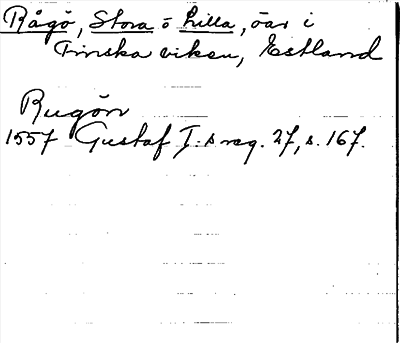 Rågö, Stora o Lilla, öar i
Finska viken, Estland
Rugön
1557 Gustaf I:s reg. 27, s. 167.